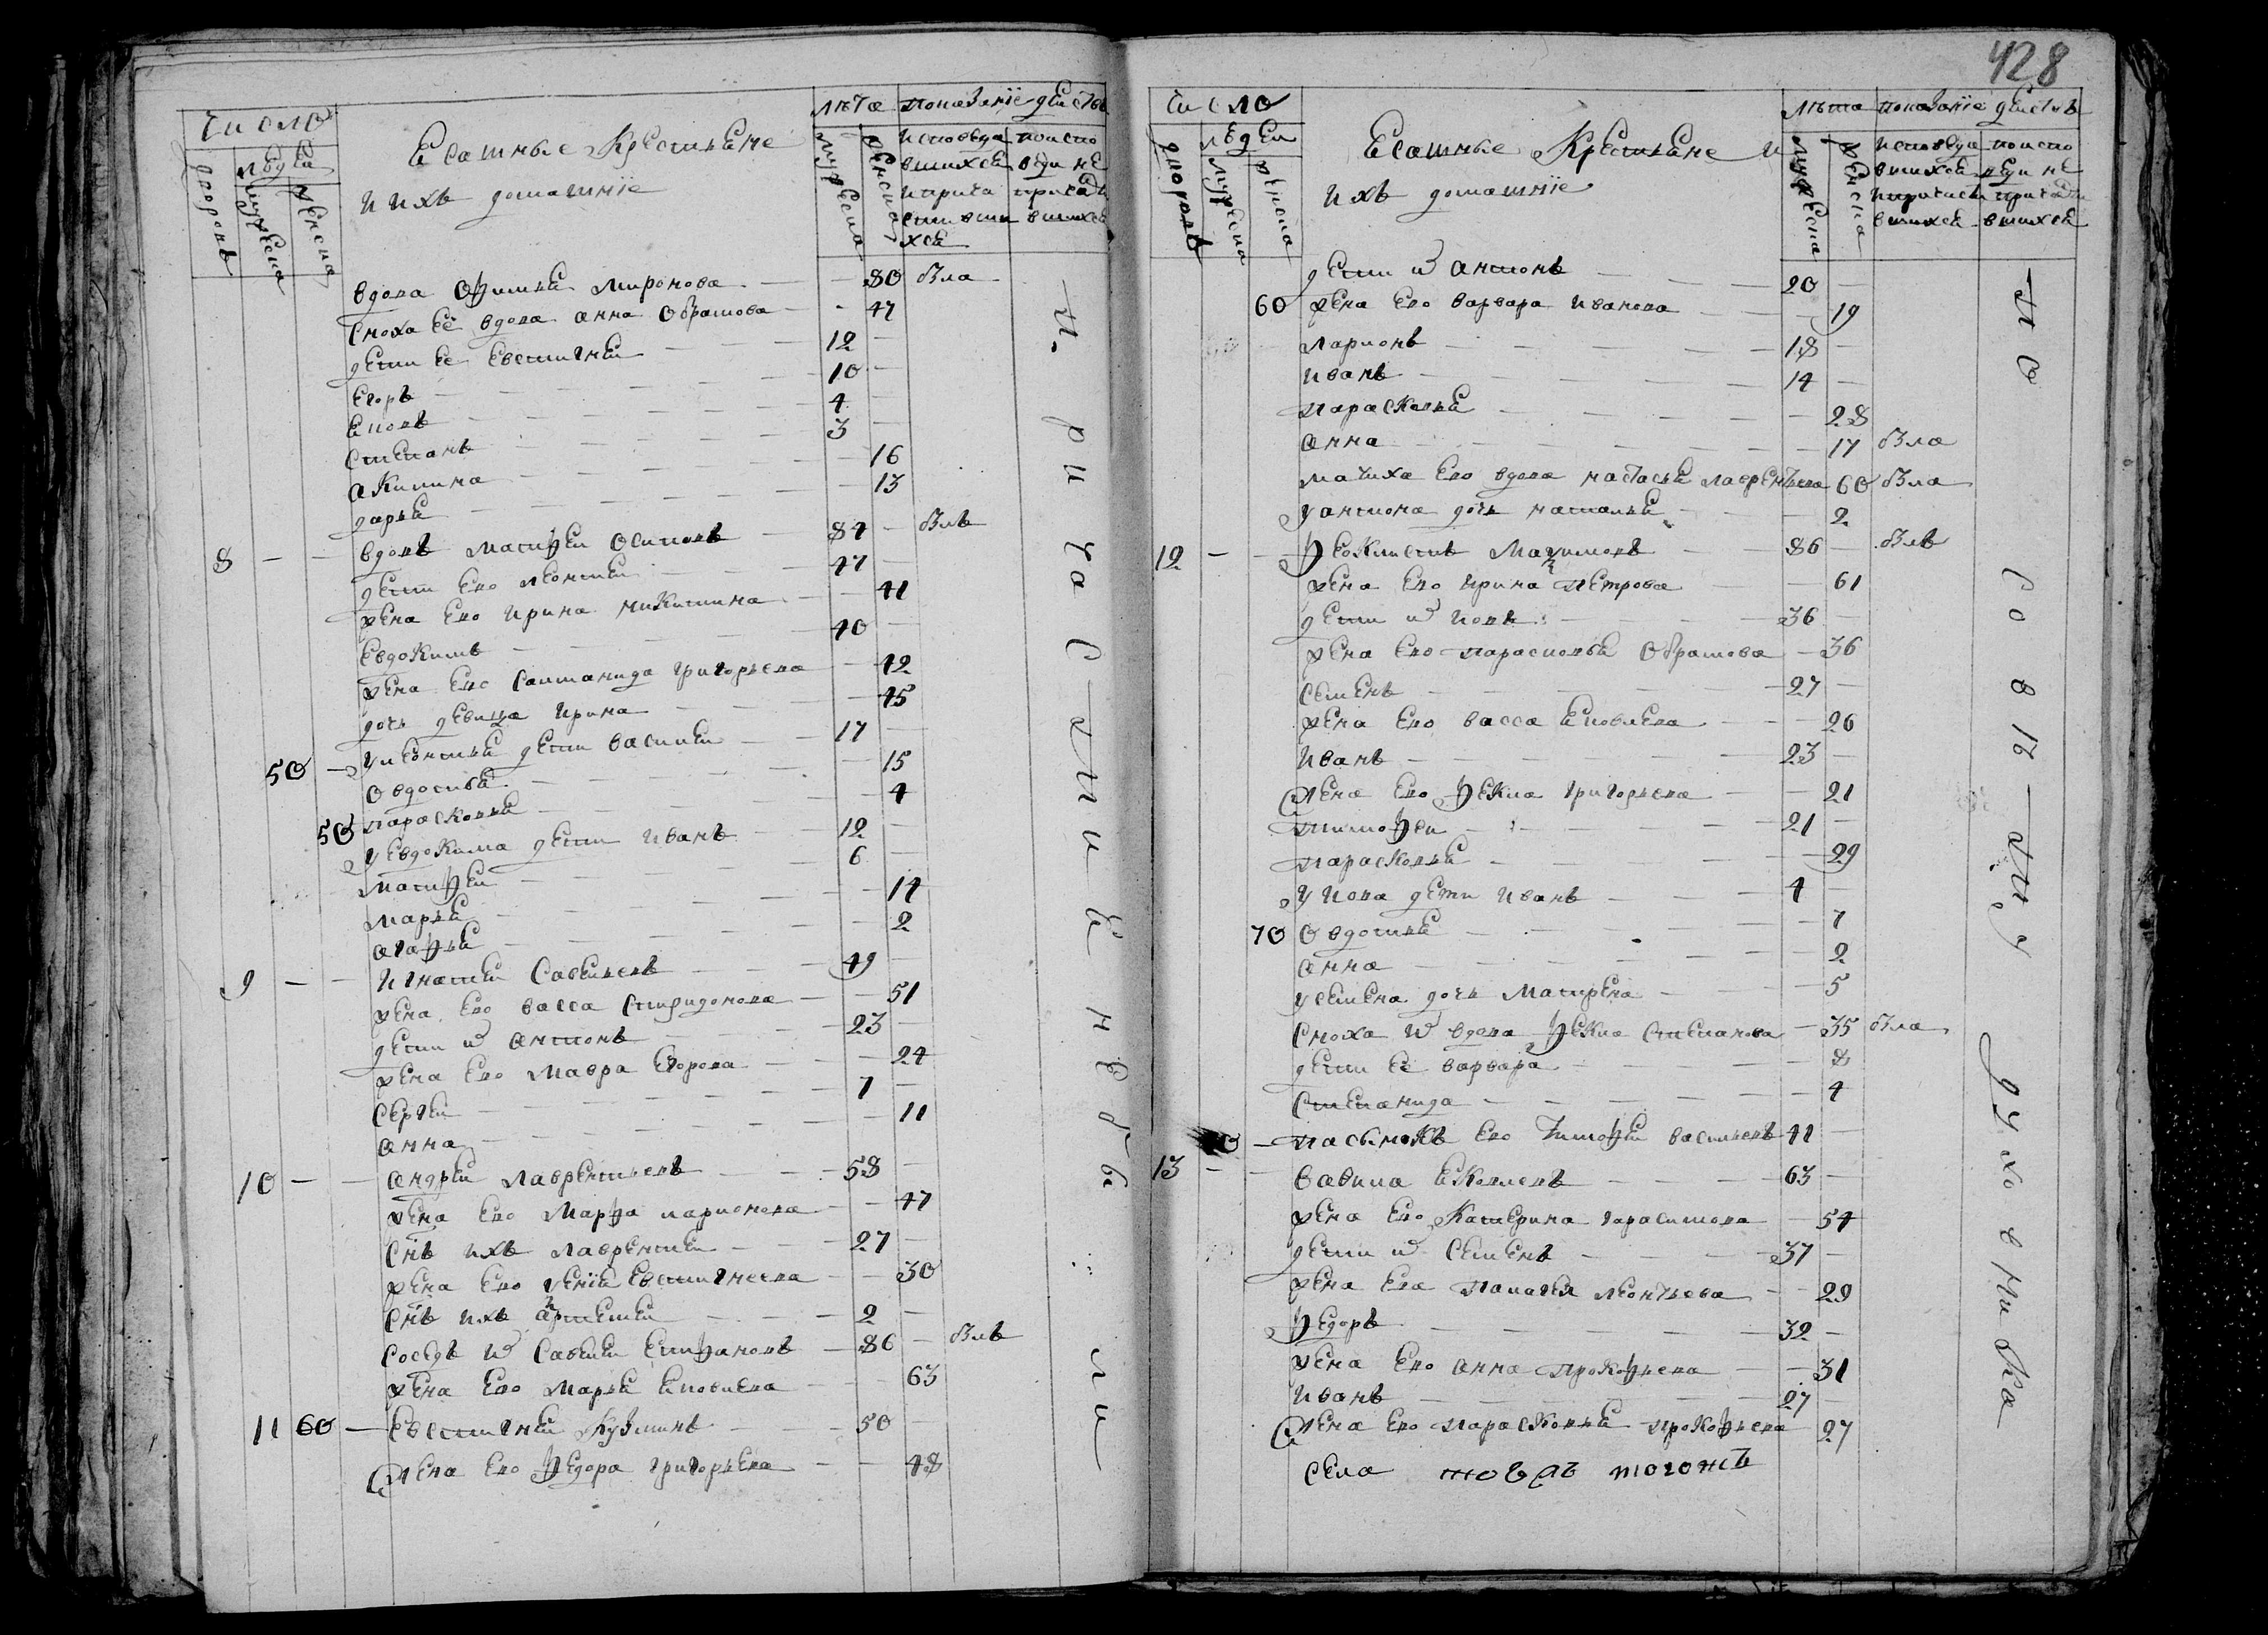 число
лѣта показаніе действъ
дворовъ
людей
мужеска
женска
Ясашные Крестьяне
и ихъ домашнїе
мужеска
женска
исповеда
вшихся
и прича
стивши
хся
по испо
веди не
причасти
вшихся
вдова Офимья Миронова 80 была
сноха её вдова анна Абрамова 47
дети ее Евстигней 12
Егоръ 10
Яковъ 4
Степанъ 3
акилина 16
дарья 13
8 вдовъ Матфей Осиповъ 84 былъ
дети ево леонтей 47
жена ево Ирина микитина 41
Евдокимъ 40
жена ево Саптанида григорьева 42
дочь девица Ирина 45
50 у леонтья дети василей 17
Овдотья 15
50 парасковья 4
у Евдокима дети Иванъ 12
Матфей 6
Марья 14
агафья 2
9 Игнатей Савельевъ 49
жена ево васса Спиридонова 51
дети ѿ антонъ 23
жена ево Мавра Егорова 24
Сергей 7
анна 11
10 андрей лаврентьевъ 58
жена ево Марфа ларионова 47
снъ ихъ лаврентей 27
жена ево ѯенїя Евстигнеева 30
снъ ихъ артемей 2
соседъ ѿ Савелей Епифановъ 86 былъ
жена ево Марья яковлева 63
11 60 Евстигней Кузминъ 50
жена ево федора григорьева 48
при час тие не бы ли
428
число
лѣта показанїе действъ
дворовъ
людей
мужеска
женска
Ясашные Крестьяне и
ихъ домашнїе
мужеска
женска
исповеда
вшихся
и причасти
вшихся
по испо
веди не
причасти
вшихся
дети ѿ антонъ 20
60 жена ево варвара Иванова 19
ларионъ 18
Иванъ 14
парасковья 28
анна 17 была
мачиха ево вдова настасья лаврентьева 60 была
у антона дочь наталья 2
12 феоктистъ Максимовъ 86 былъ
жена ево Ирина Петрова 61
дети ѿ Иовъ 36
жена ево парасковья Абрамова 36
Семенъ 27
жена ево васса яковлева 26
Иванъ 23
жена ево фекла григорьева 21
тимофеи 21
парасковья 29
у Иова дети Иванъ 4
70 Овдотья 7
анна 2
у Семена дочь Матрена 5
Сноха ѿ вдова фекла степанова 35 была
дети ее варвара 8
Степанида 4
пасынокъ ево Тимофей васильевъ 41
13 вавила яковлевъ 63
жена ево Катерина гарасимова 54
дети ѿ Семенъ 37
жена ево палагея леонтьева 29
федоръ 32
жена ево анна прокофьева 31
Иванъ 27
жена ево парасковья прокофьева 27
села тогожъ
по со вѣ ту духо вни ка